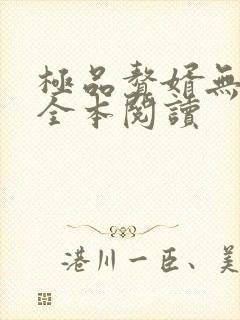 極品贅婿無
全本閱讀
港川一臣、美